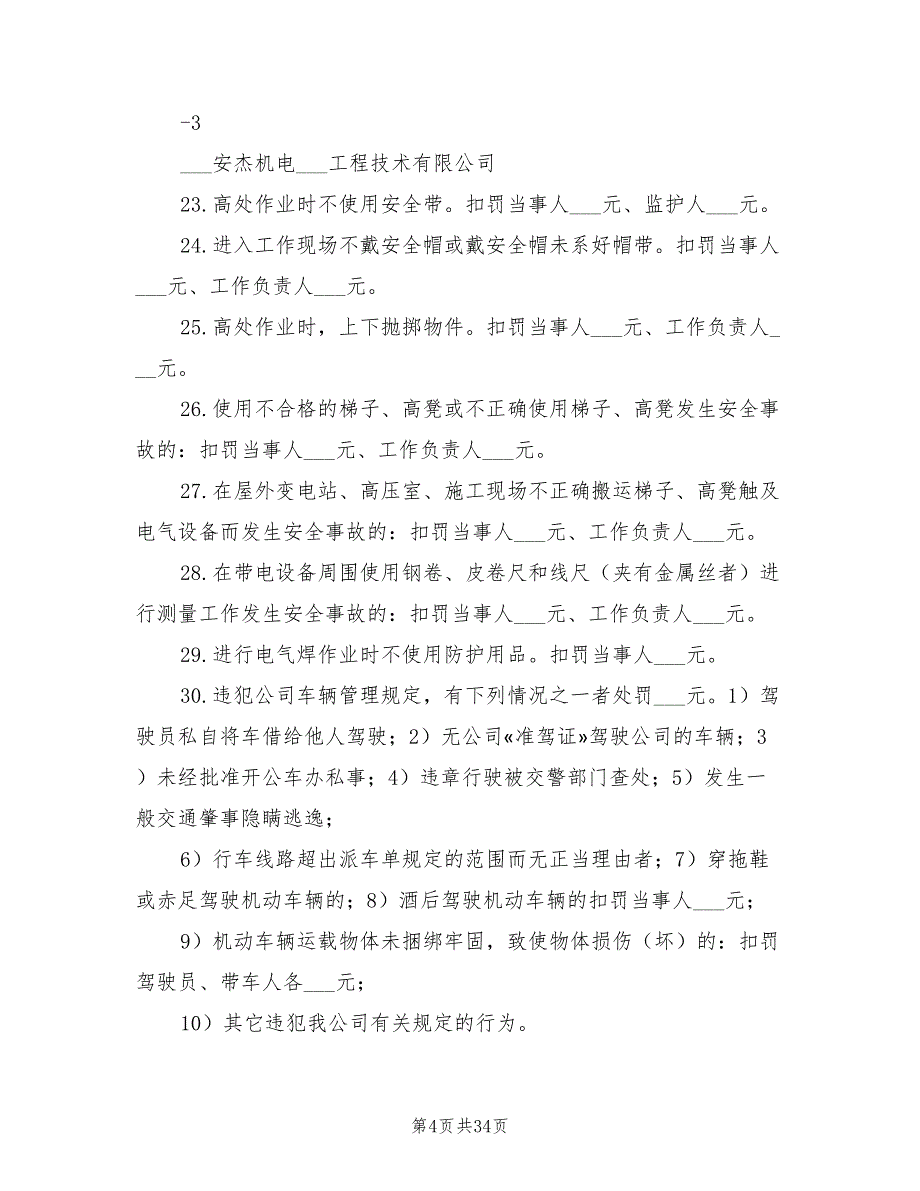 -3
___安杰机电___工程技术有限公司
23.高处作业时不使用安全带。扣罚当事人___元、监护人___元。
24.进入工作现场不戴安全帽或戴安全帽未系好帽带。扣罚当事人
___元、工作负责人___元。
25.高处作业时，上下抛掷物件。扣罚当事人___元、工作负责人_
__元。
26.使用不合格的梯子、高凳或不正确使用梯子、高凳发生安全事
故的：扣罚当事人___元、工作负责人___元。
27.在屋外变电站、高压室、施工现场不正确搬运梯子、高凳触及
电气设备而发生安全事故的：扣罚当事人___元、工作负责人___元。
28.在带电设备周围使用钢卷、皮卷尺和线尺（夹有金属丝者）进
行测量工作发生安全事故的：扣罚当事人___元、工作负责人___元。
29.进行电气焊作业时不使用防护用品。扣罚当事人___元。
30.违犯公司车辆管理规定，有下列情况之一者处罚___元。1）驾
驶员私自将车借给他人驾驶；2）无公司«准驾证»驾驶公司的车辆；3
）未经批准开公车办私事；4）违章行驶被交警部门查处；5）发生一
般交通肇事隐瞒逃逸；
6）行车线路超出派车单规定的范围而无正当理由者；7）穿拖鞋
或赤足驾驶机动车辆的；8）酒后驾驶机动车辆的扣罚当事人___元；
9）机动车辆运载物体未捆绑牢固，致使物体损伤（坏）的：扣罚
驾驶员、带车人各___元；
10）其它违犯我公司有关规定的行为。
第4页共34页